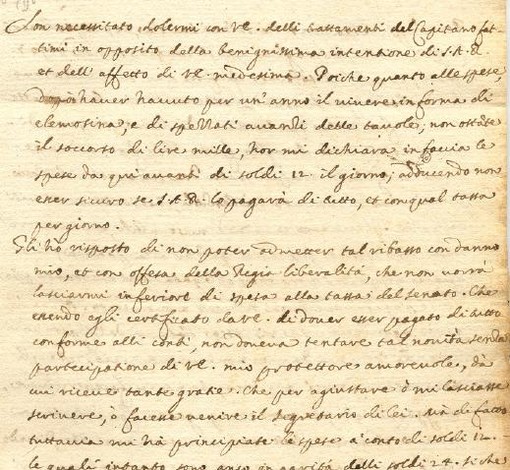 Son necessitato dolermi con VE. delli trattamenti del Capitano fat-
timi in opposito della benignissima intentione di S.A.R.
et dell'affetto di VE. medesima. Poiche quanto alle spese,
doppò haver havuto per un'anno il vivere in forma di
elemosina, e di spettati avanzi delle tavole, non ostãte
il soccorso di lire mille, hor mi dichiara in faccia le
spese da qui avanti di soldi 12 il giorno, adducendo non
esser sicuro se S.A.R. lo pagarà di tutto, et con qual tassa
per giorno.
Gli hò risposto di non poter admetter tal ribasso con danno
mio, et con offesa della Regia liberalità, che non vorrà
lasciarmi inferiore di spesa alla tassa del Senato. Che
essendo egli certificato da VE. di dover esser pagato di tutto
conforme alli conti, non doveva tentare tal novità senza
partecipatione di VE. mio protettore amorevole, dà
cui riceve tante gratie. Che per agiustare ò mi lasciasse
scrivere, ò facesse venire il segretario di lei. Mà di fatto
tuttavia mi hà principiate le spese à conto di soldi 12.
le quali intanto sono anco in parità delli soldi 24. si che